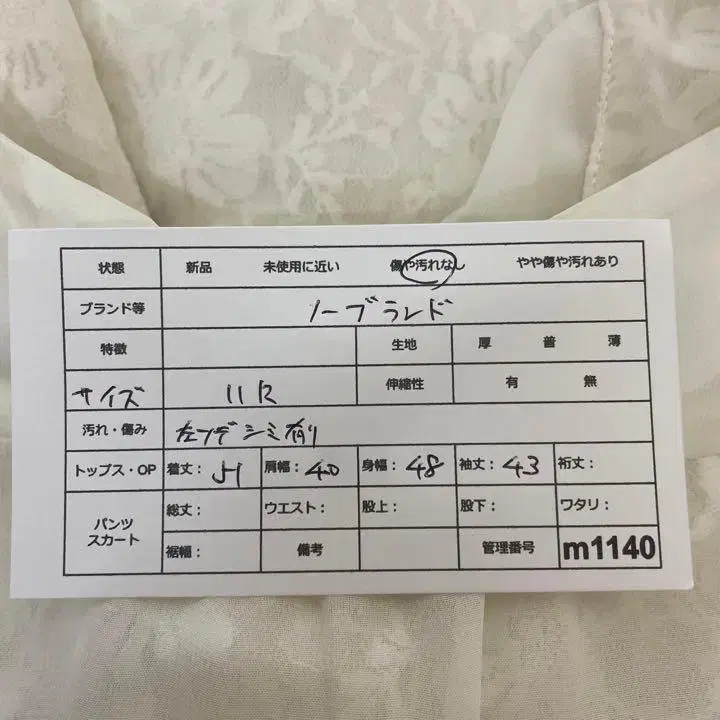 状態 新品 未使用に近い 傷や汚れなし やや傷や汚れあり
ブランド等 ノーブランド
特徴 生地 厚 普 薄
サイズ 11R 伸縮性 有 無
汚れ・傷み 左ソデ シミ有り
トップス・OP 着丈: 51 肩幅: 40 身幅: 48 袖丈: 43 裄丈:
パンツ スカート 総丈: ウエスト: 股上: 股下: ワタリ:
裾幅: 備考 管理番号 m1140